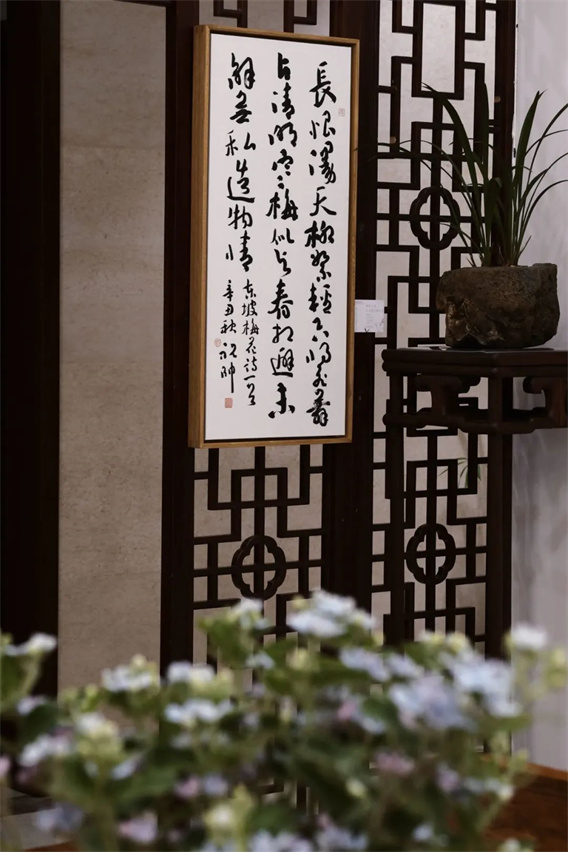 長恨漫天柳絮輕只將飛舞
占清明寒梅似与春相避未
解無私造物情
東坡梅花詩一首
辛丑秋祝帥